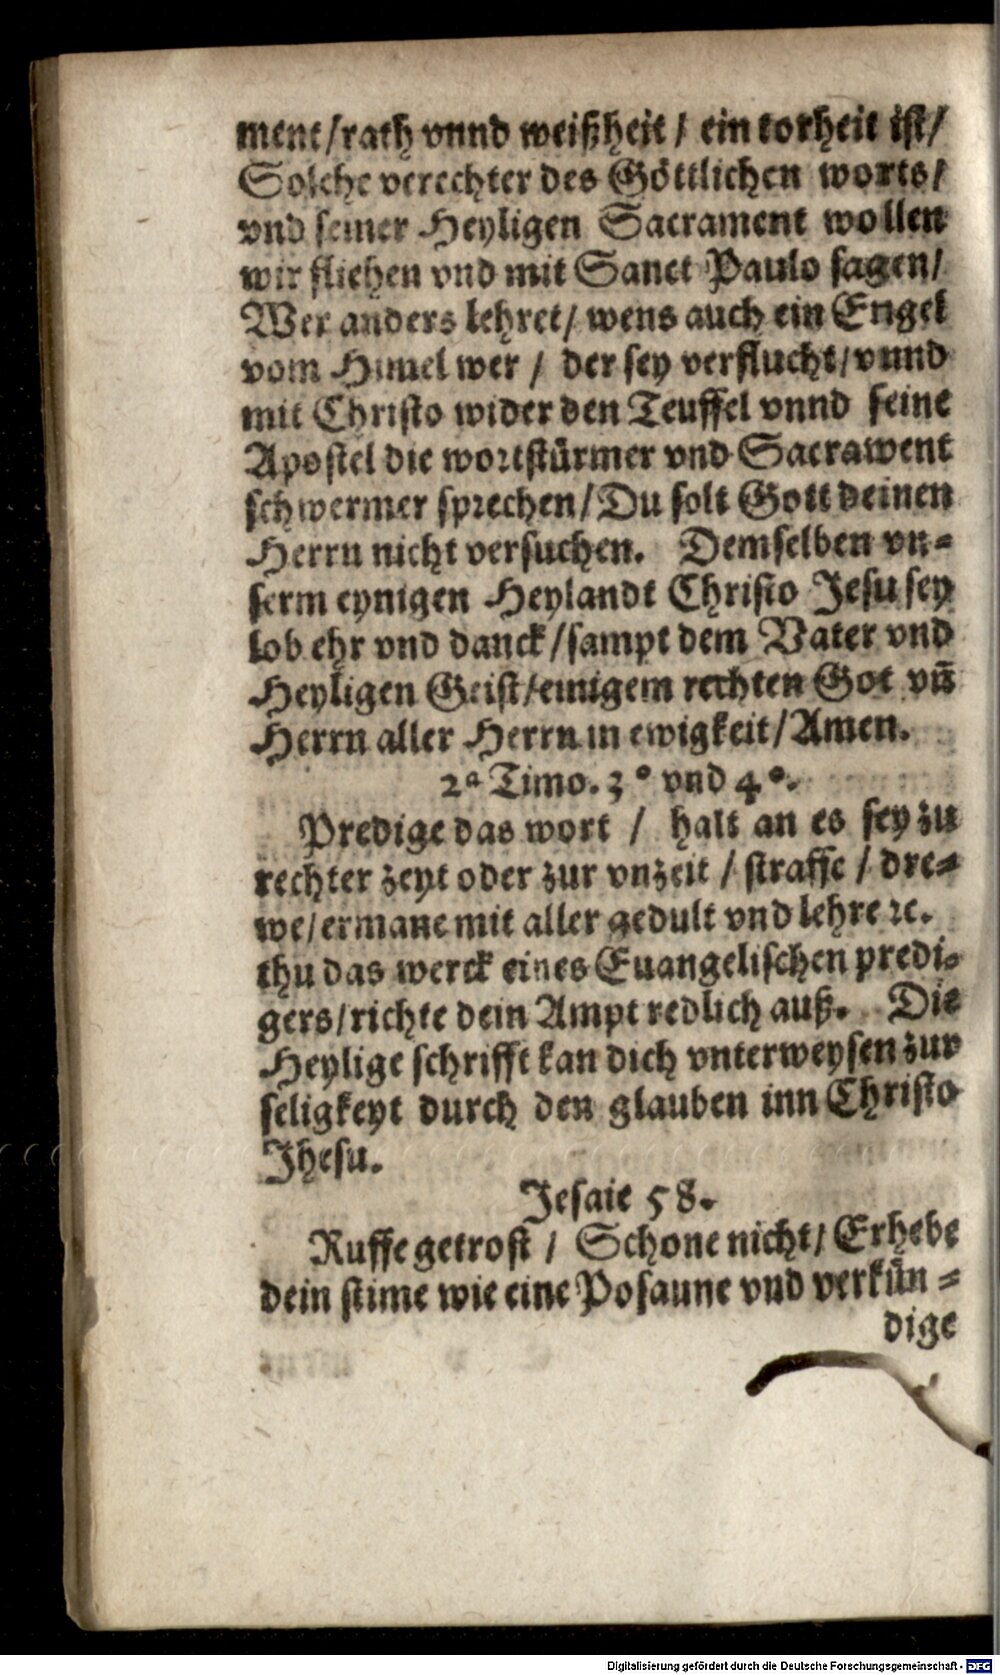 ment/rath vnnd weißheit / ein torheit ist/
Solche verechter des Göttlichen worts/
vnd seiner Heyligen Sacrament wollen
wir fliehen vnd mit Sanct Paulo sagen/
Wer anders lehret/ wens auch ein Engel
vom Himel wer / der sey verflucht/vnnd
mit Christo wider den Teuffel vnnd seine
Apostel die wortstürmer vnd Sacrawent
schwermer sprechen/Du solt Gott deinen
Herrn nicht versuchen. Demselben vn=
serm eynigen Heylandt Christo Jesu sey
lob ehr vnd danck/sampt dem Vater vnd
Heyligen Geist/einigem rechten Got vn̄
Herrn aller Herrn in ewigkeit/Amen.
2ª Timo. 3° vnd 4°.
Predige das wort / halt an es sey zu
rechter zeyt oder zur vnzeit / straffe / dre=
we/ermane mit aller gedult vnd lehre ꝛc.
thu das werck eines Euangelischen predi=
gers/richte dein Ampt redlich auß. Die
Heylige schrifft kan dich vnterweysen zur
seligkeyt durch den glauben inn Christo
Jhesu.
Jesaie 58.
Ruffe getrost / Schone nicht/ Erhebe
dein stime wie eine Posaune vnd verkün=
dige
Digitalisierung gefördert durch die Deutsche Forschungsgemeinschaft - DFG